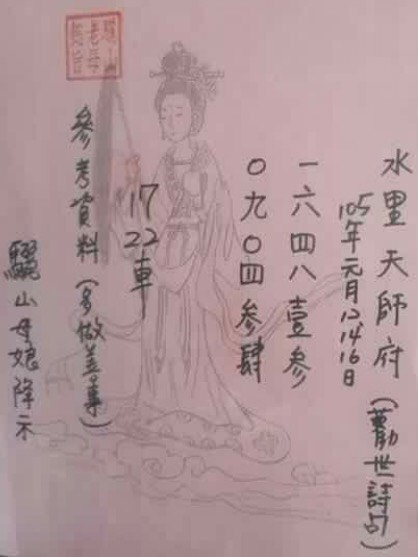 水里天師府(勸世詩句)
105年元月12,14,16日
一六四八壹参
〇九〇四参肆
17
22車
參考資料(多做善事)
驪山母娘降示